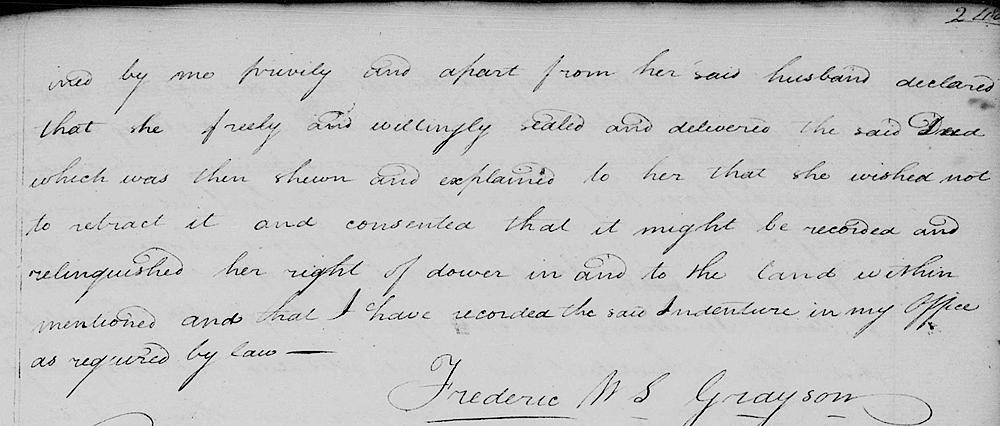 ined by me privily and apart from her said husband declared
that she freely and willingly sealed and delivered the said Deed
which was then shewn and explained to her that she wished not
to retract it and consented that it might be recorded and
relinquished her right of dower in and to the land within
mentioned and that I have recorded the said Indenture in my Office
as required by law —
Frederic W S Grayson